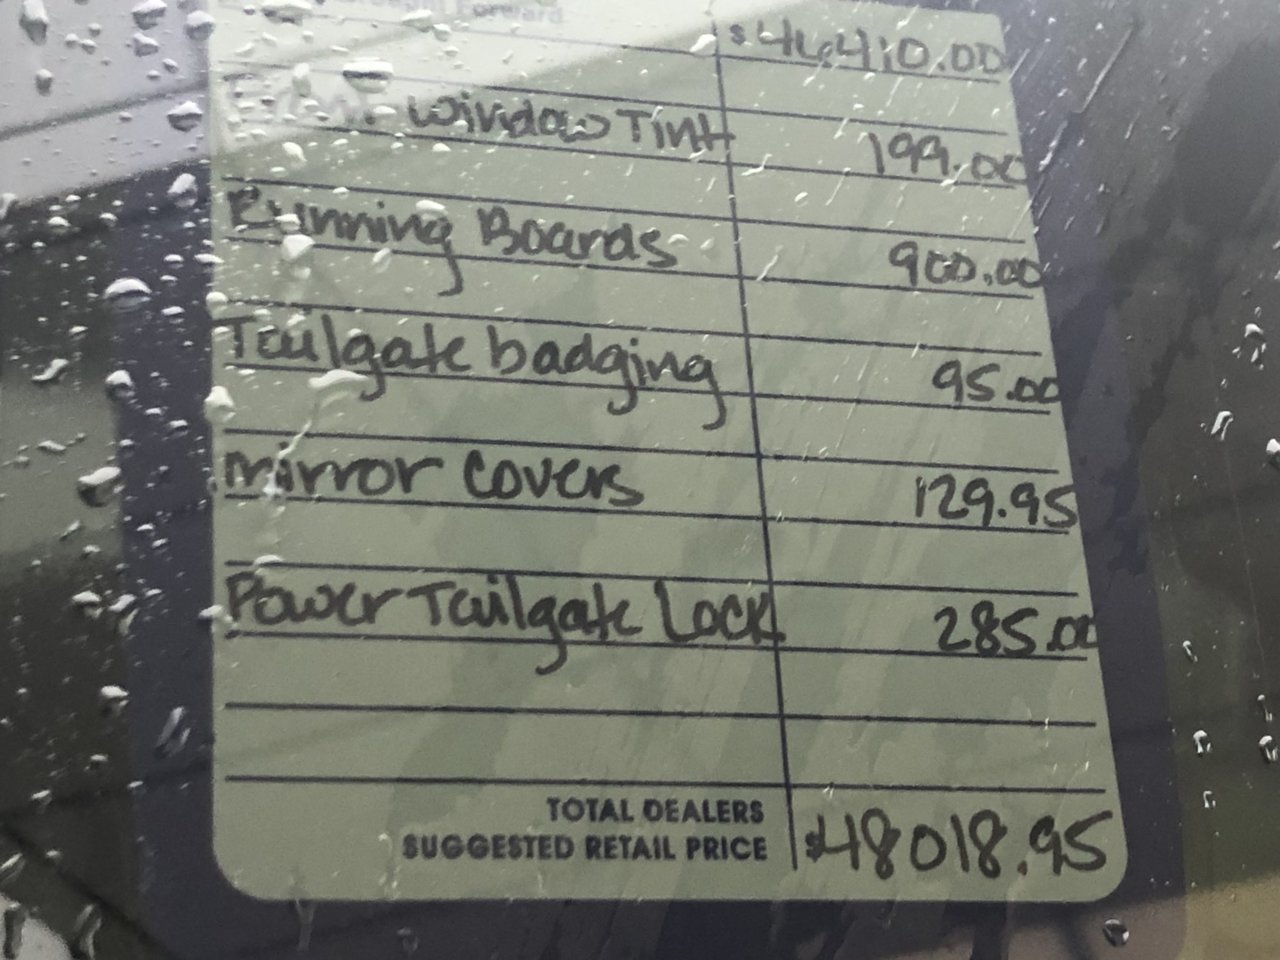 Forward
$46,410.00
window Tint 199.00
Running Boards 900.00
Tailgate badging 95.00
mirror covers 129.95
Power Tailgate Lock 285.00
TOTAL DEALERS
SUGGESTED RETAIL PRICE $48018.95